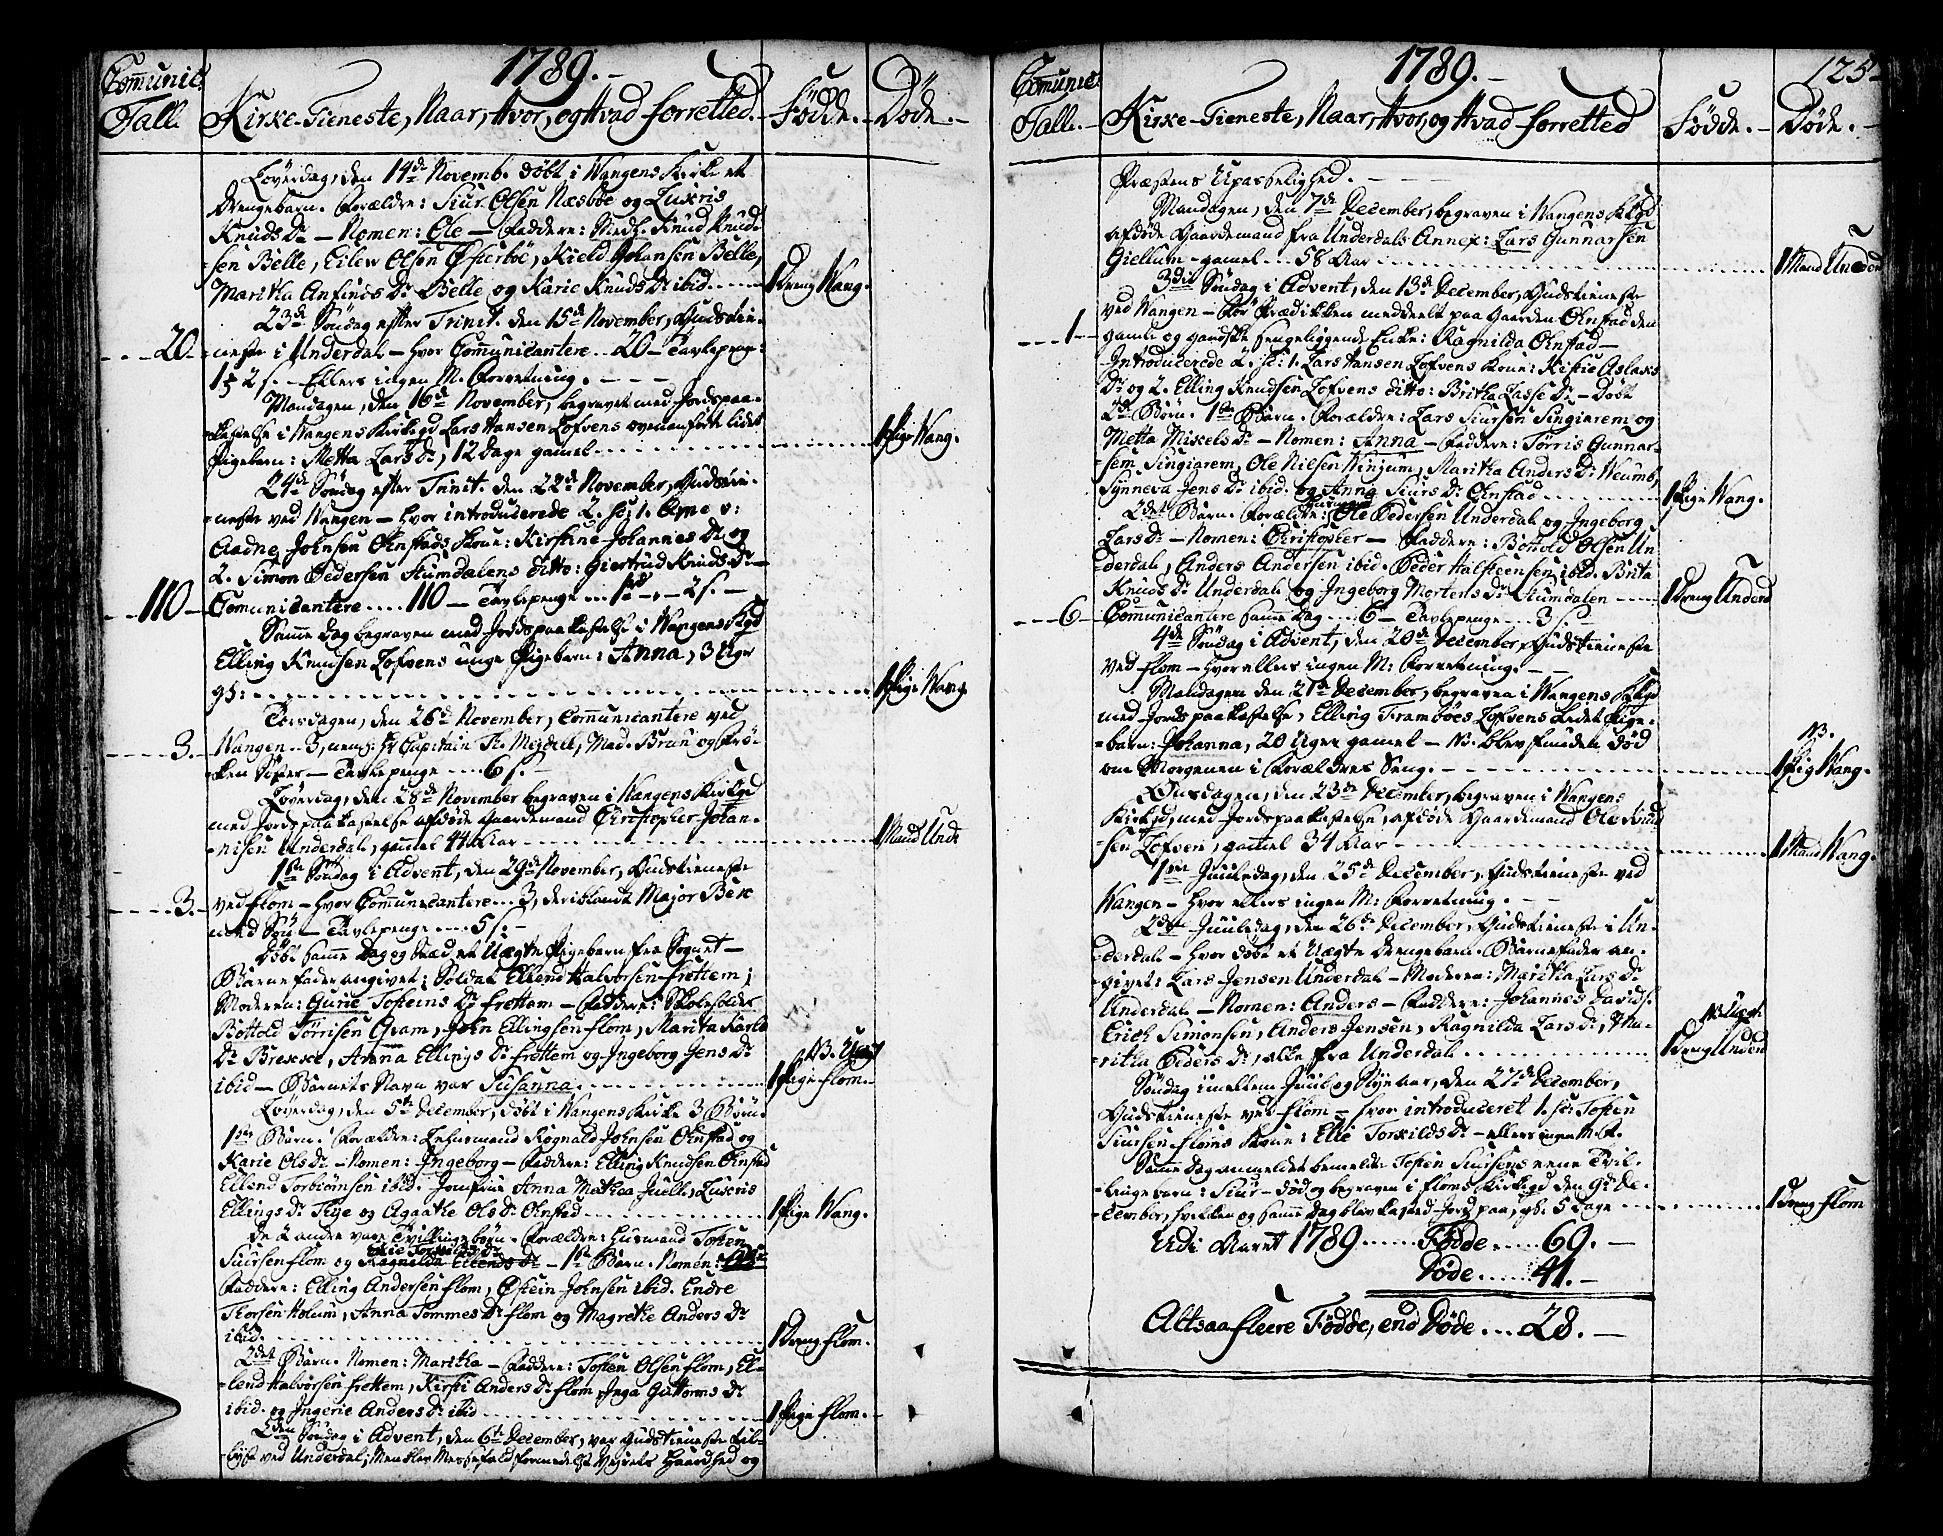 1789.
Communic: Tall. Kirke-Tieneste, Naar, Hvor, og Hvad forretted. Födde. Döde.
Löverdag, den 14de Novemb. döbt i Wangens Kirke et
Drengebarn. Forældre: Siur Olsen Næsböe og Lucris
Knuds Dr. – Nomen: Ole – Faddere: Medh. Knud Knud-
sen Belle, Eilev Olsen Österböe, Kield Johansen Belle,
Maritha Anfinds Dr. Belle og Karie Knuds Dr. ibid. 1 Dreng Wang.
23de Söndag efter Trinit. den 15de November, Gudstie-
20 neste i Underdal – hvor Communicantere 20 – Tavlepenge:
1 2 s. – Ellers ingen M. Forretning.
Mandagen, den 16de November, begravet med Jordspaa-
kastelse i Wangens Kirkegd Lars Hansen Lofvens ovenanförte lidet
Pigebarn: Metta Lars Dr., 12 Dage gamel 1 Pige Wang.
24de Söndag efter Trinit. den 22de November, Gudstie-
neste ved Wangen – hvor introducerede 2. sc: 1.
Aadne Johnsen Ohnstads Kone: Kirstine Johannes Dr. og
2. Simon Pedersen Humdalens ditto: Giertrud Knuds Dr. –
110 Communicantere 110 – Tavlepenge 2 s. –
Samme Dag begraven med Jordspaakastelse i Wangens Kkgd
Elling Knudsen Lofvens unge Pigebarn: Anna, 3 Uger
gs: 1 Pige Wang
Torsdagen, den 26de November, Communicantere ved
3. Wangen 3, nemlig: Hr Capitain Meydell, Mad. Bruun og Frö-
ken – Tavlepenge 6 s. –
Löverdag, den 28de November begraven i Wangens Kirkegd
med Jordspaakastelse afdöde Gaardemand Christopher Johan-
nisen Underdal, gamel 44 Aar 1 Mand Undr
1ste Söndag i Advent, den 29de November, Gudstieneste
3. ved Flom – hvor Communicantere 3, deriblandt Major Beck
med Sön – Tavlepenge 5 s. –
Döbt samme Dag og Sted et Uægte Pigebarn fra Sognet –
Barnefader angivet: Soldat Ellend Halvorsen Frettem;
Moderen: Gurie Tosteins Dr. Frettem – Faddere: Skoleholder
Bottold Törrisen Qvam, John Ellingsen Flom, Marita Karls
Dr. Brecke, Anna Ellings Dr. Frettem og Ingeborg Jens Dr. NB. Uægt
ibid – Barnets Navn var Susanna. 1 Pige Flom.
Löverdag, den 5te December, döbt i Wangens Kirke 3 Börn.
1ste Barn. Forældre: Rognald Johnsen Ohnstad og
Karie Ols Dr. – Nomen: Ingeborg – Faddere: Elling Knudsen Ohnstad
Ellend Torbiörnsen ibid. Jomfrue Anna Mathea Juell, Lucris
Ellings Dr. Frye og Agaathe Ols Dr. Ohnstad 1 Pige Wang.
De 2 andre vare Tvillingebörn. Forældre: Husmand Tosten
Elie Torkilds Dr.
Siursen Flom og Ragnilda Ellends Dr. – 1ste Barn. Nomen:
Faddere: Elling Andersen Flom, Östein Johnsen ibid. Endre
Thorsen Holum, Anna Tommes Dr. Flom og Magrethe Anders Dr.
ibid. 1 Dreng Flom.
2det Barn. Nomen: Maritha – Faddere: Tosten Olsen Flom, El-
lend Halvorsen Frettem, Kirsti Anders Dr. Flom, Inga Guttorms Dr.
ibid. og Ingerie Anders Dr. ibid 1 Pige Flom.
2den Söndag i Advent, den 6te December, var Gudstieneste til-
lyst ved Underdal; Men blev Messefald formedelst Veyrets Haardhed og
1789. 125
Communic: Tall. Kirke-Tieneste, Naar, Hvor, og Hvad forretted Födde. Döde.
Præstens Upasselighed.
Mandagen, den 7de December, begraven i Wangens Kkgd
afdöde Gaardemand fra Underdals Annex: Lars Gunnarsen
Giellum – gamel 58 Aar 1 Mand Underd
3die Söndag i Advent, den 13de December, Gudstieneste
ved Wangen – För Prædikken meddeelt paa Gaarden Ohnstad den
1 gamle og gandske sengeliggende Enke: Ragnilda Ohnstad –
Introducerede 2. sc: 1. Lars Hansen Lofvens Kone: Kistie Aslaks
Dr. og 2. Elling Knudsen Lofvens ditto: Britha Lasse Dr. – Döbt
2de Börn. 1ste Barn. Forældre: Lars Siursen Singiarem og
Metta Mikels Dr. – Nomen: Anna – Faddere: Törris Gunnar-
sen Singiarem, Ole Nilsen Winjum, Maritha Anders Dr. Weum,
Synneva Jens Dr. ibid. og Anna Siurs Dr. Ohnstad 1 Pige Wang.
2det Barn. Forældre: Ole Pedersen Underdal og Ingeborg
Lars Dr. – Nomen: Christopher – Faddere: Bottold Olsen Un-
derdal, Anders Andersen ibid. Peder Halsteensen ibid. Brita
Knuds Dr. Underdal og Ingeborg Mortens Dr. Humdalen 1 Dreng Underd
6 Communicantere samme Dag 6 – Tavlepenge 3 s –
4de Söndag i Advent, den 20de December, Gudstieneste
ved Flom – hvor ellers ingen M: Forretning. –
Mandagen den 21de December, begraven i Wangens Kkgd
med Jordspaakastelse, Elling Tramböes Lofvens Pige-
barn: Johanna, 20 Uger gamel – NB. blev funden död NB.
om Morgenen i Forældres Seng. 1 Pig Wang.
Onsdagen, den 23de December, begraven i Wangens
Kirkegd, med Jordspaakastelse, afdöde Gaardemand Ole Knud
sen Lofven, gamel 34 Aar 1 Mand Wang.
1ste Juuledag, den 25de December, Gudstieneste ved
Wangen – hvor ellers ingen M: Forretning.
2den Juuledag, den 26de December, Gudstieneste i Un-
derdal – hvor döbt et Uægte Drengebarn. Barnefader an-
givet: Lars Jensen Underdal – Moderen: Maritha Lars Dr.
Underdal – Nomen: Anders – Faddere: Johannes Davids.
Erich Simonsen, Anders Jensen, Ragnilda Lars Dr., Ma- NB. Uægt
ritha Peders Dr., alle fra Underdal 1 Dreng Underd
Söndag imellem Juul og Nyeaar, den 27de December,
Gudstieneste ved Flom – hvor introduceret 1. sc: Tosten
Siursen Floms Kone: Elie Torkilds Dr. – ellers ingen M. F.
Samme Dag anmeldet bemeldte Tosten Siursens eene Tvil-
lingebarn: Siur – död og begraven i Floms Kirkegd den 9de De-
cember, hvilken og samme Dag blev kasted Jord paa, gs. 5 Dage 1 Dreng Flom
Udi Aaret 1789 Födde 69. –
Döde 41. –
Altsaa fleere Födde, end Döde 28. –